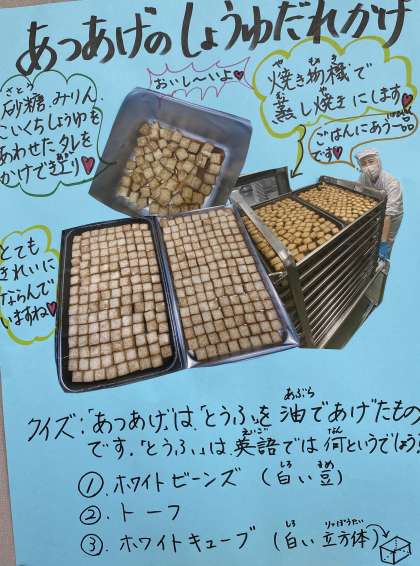 あつあげのしょうゆだれかけ
おいし～いよ♥
砂糖、みりん、
さとう
こいくちしょうゆを
あわせたタレを
かけてできあがり♥
焼き物機で
や もの き
蒸し焼きにします♥
む や
ごはんにあう一品
です♥
とても
きれいに
ならんで
いますね♥
クイズ:「あつあげ」は、「とうふ」を油であげたもの
あぶら
です。「とうふ」は英語では何というでしょう
えいご なん
① ホワイトビーンズ（白い豆）
しろ まめ
② トーフ
③ ホワイトキューブ（白い立方体）
しろ りっぽうたい